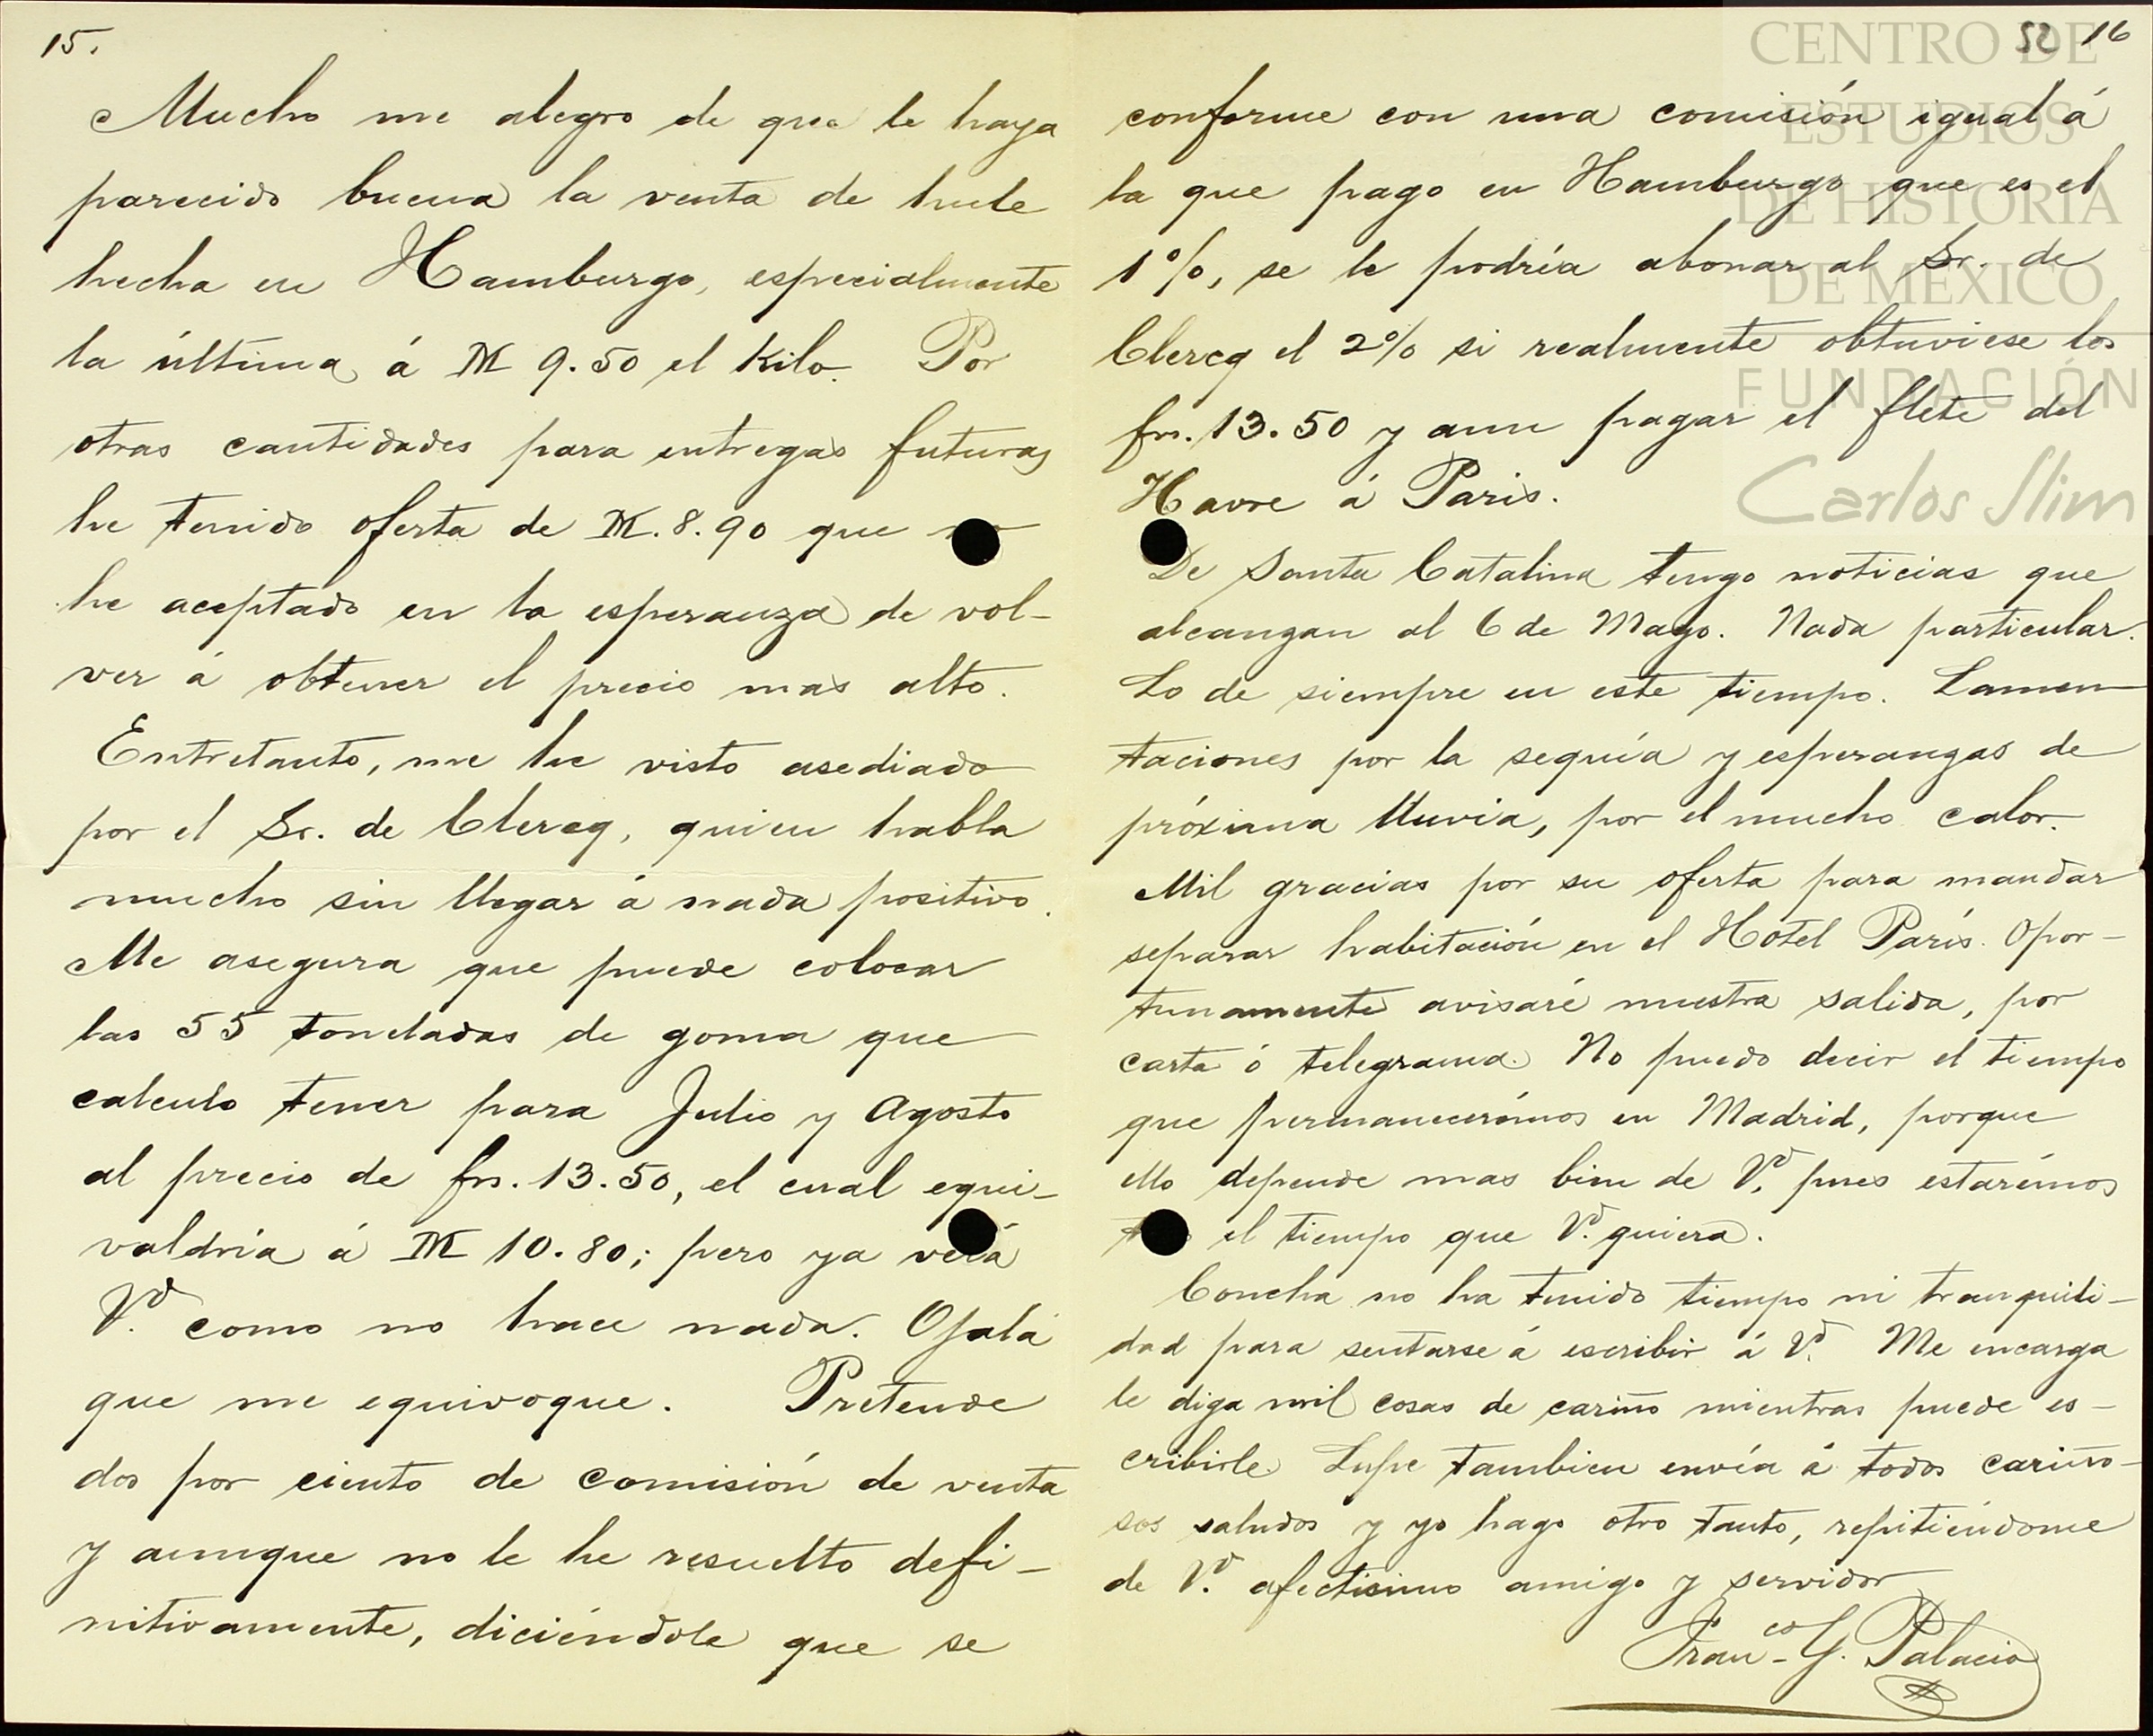 15.
Mucho me alegro de que le haya
parecido buena la venta de hule
hecha en Hamburgo, especialmente
la última á M 9.50 el Kilo. Por
otras cantidades para entregas futuras
he tenido oferta de M. 8.90 que no
he aceptado en la esperanza de vol-
ver á obtener el precio mas alto.
Entretanto, me he visto asediado
por el Sr. de Clercq, quien habla
mucho sin llegar á nada positivo.
Me asegura que puede colocar
las 55 toneladas de goma que
calculo tener para Julio y Agosto
al precio de frs. 13.50, el cual equi-
valdría á M 10.80; pero ya verá
Vd. como no hace nada. Ojalá
que me equivoque. Pretende
dos por ciento de comisión de venta
y aunque no le he resuelto defi-
nitivamente, diciéndole que se
52 16
conforme con una comisión igual á
la que pago en Hamburgo que es el
1%, se le podría abonar al Sr. de
Clercq el 2% si realmente obtuviese los
frs. 13.50 y aun pagar el flete del
Havre á Paris.
De Santa Catalina tengo noticias que
alcanzan al 6 de Mayo. Nada particular.
Lo de siempre en este tiempo. Lamen-
taciones por la sequía y esperanzas de
próxima lluvia, por el mucho calor.
Mil gracias por su oferta para mandar
separar habitación en el Hotel París. Opor-
tunamente avisaré nuestra salida, por
carta ó telegrama. No puedo decir el tiempo
que permanecerémos en Madrid, porque
ello depende mas bien de Vd. pues estarémos
el tiempo que Vd. quiera.
Concha no ha tenido tiempo ni tranquili-
dad para sentarse á escribir á Vd. Me encarga
le diga mil cosas de cariño mientras puede es-
cribirle. Lupe tambien envía á todos cariño-
sos saludos y yo hago otro tanto, repitiéndome
de Vd. afectisimo amigo y servidor
Franco. G. Palacio
CENTRO DE
ESTUDIOS
DE HISTORIA
DE MEXICO
FUNDACIÓN
Carlos Slim